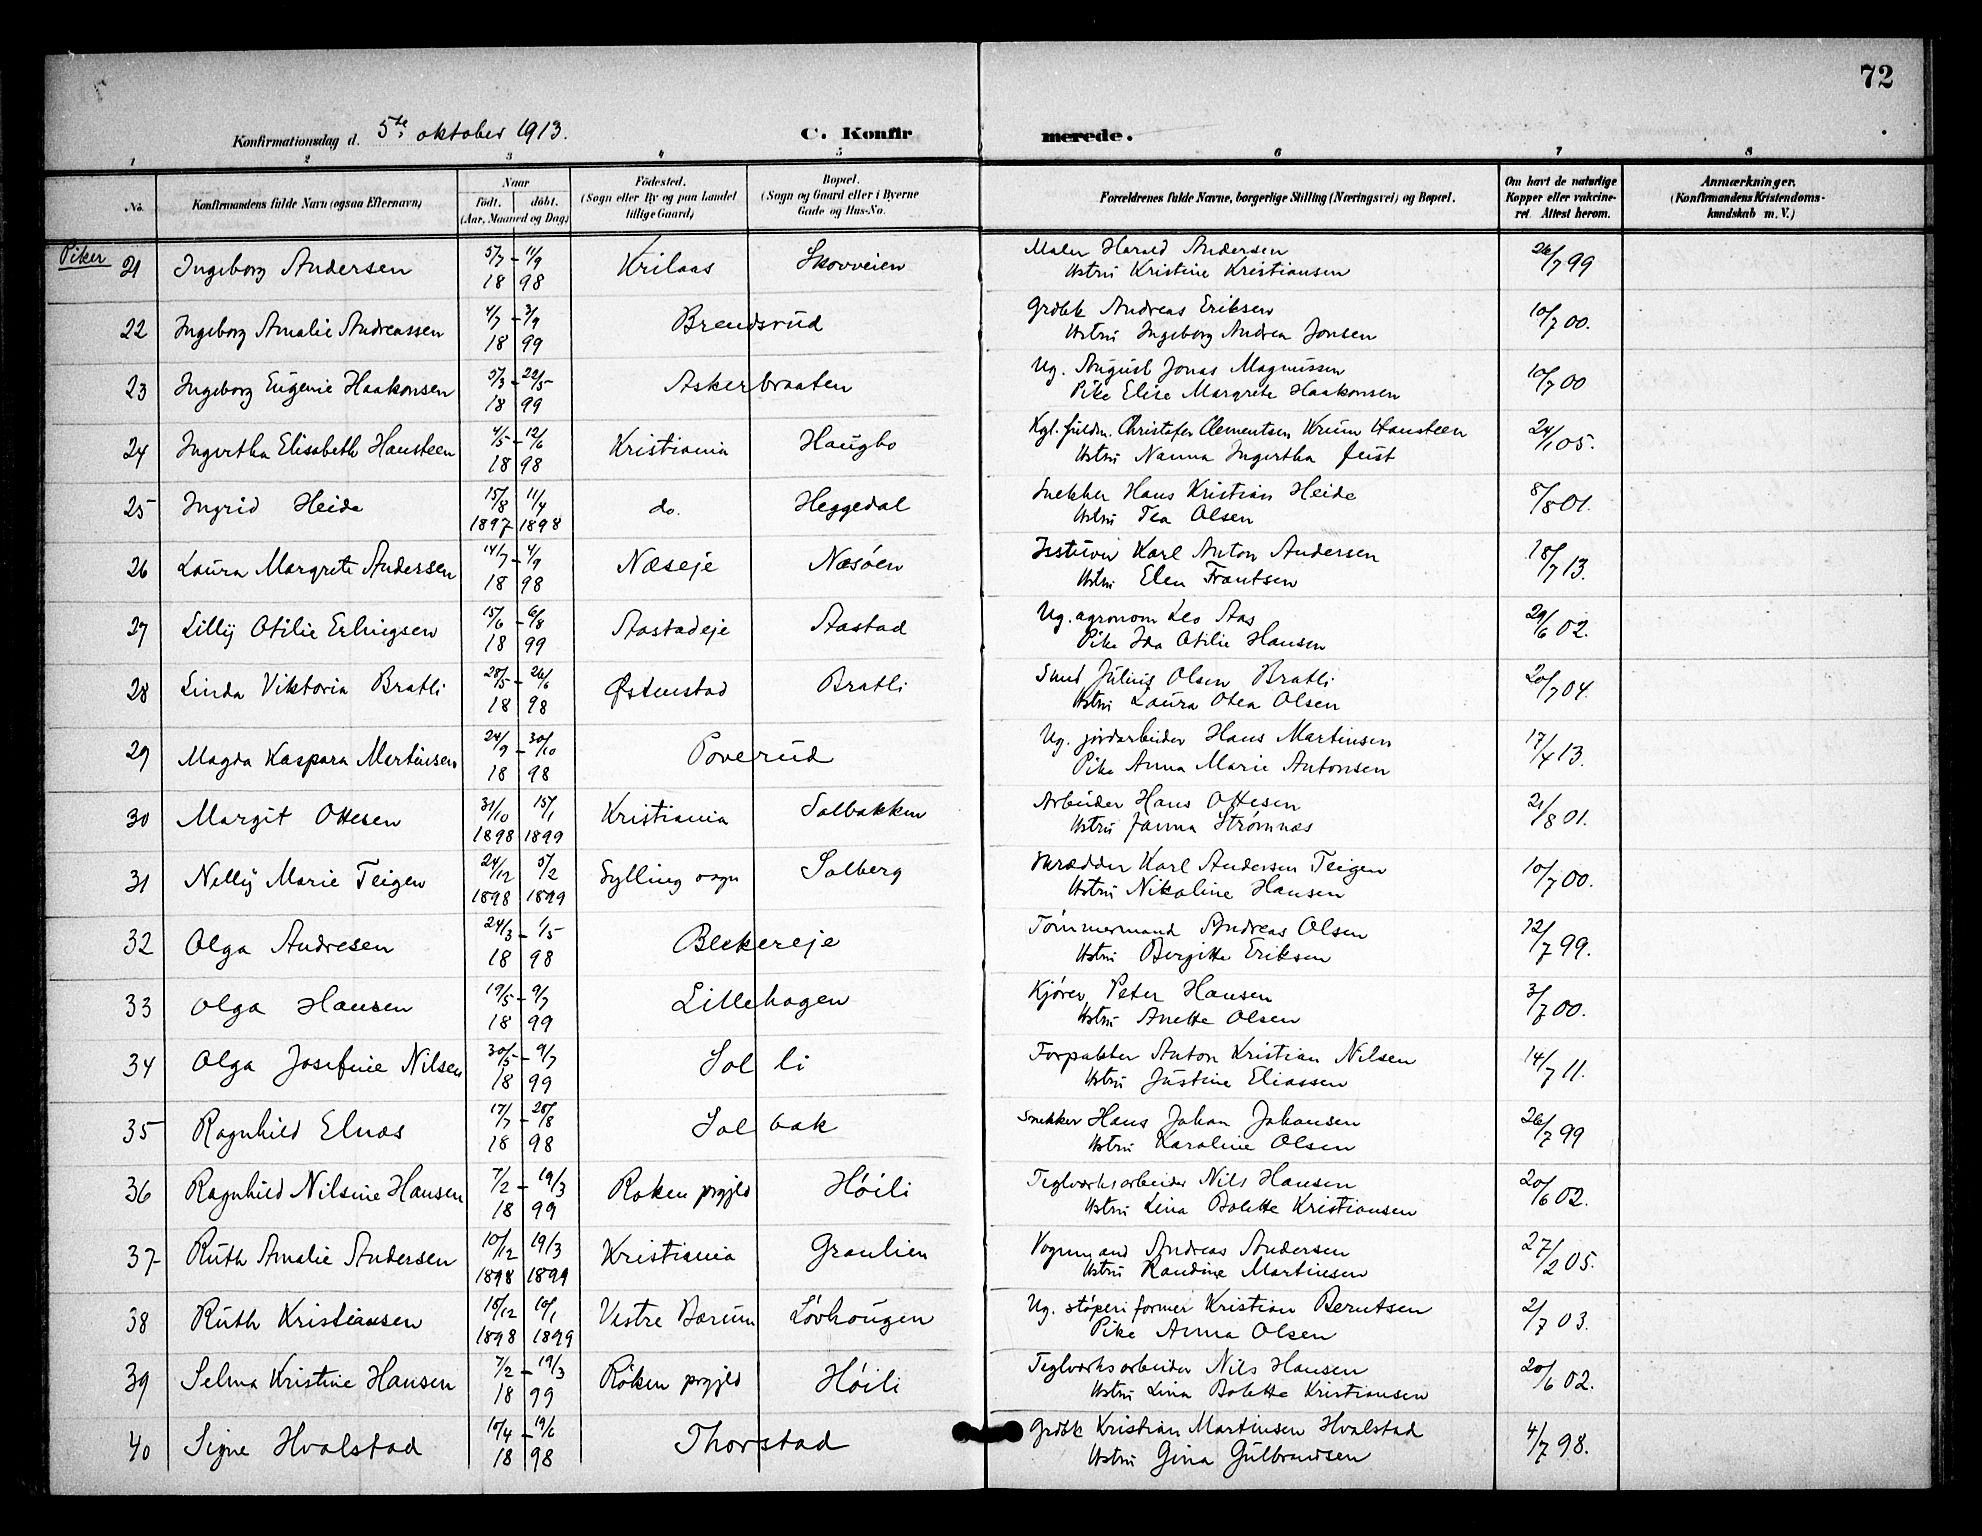 72
Konfirmationsdag d. 5te oktober 1913.
C. Konfirmerede.
1 2 3 4 5 6 7 8
No. Konfirmandens fulde Navn (ogsaa Efternavn) Naar født. døbt. (Aar, Maaned og Dag) Fødested. (Sogn eller By og paa Landet tillige Gaard) Bopæl. (Sogn og Gaard eller i Byerne Gade og Hus-No. Forældrenes fulde Navne, borgerlige Stilling (Næringsvei) og Bopæl. Om havt de naturlige Kopper eller vakcineret. Attest herom. Anmærkninger. (Konfirmandens Kristendomskundskab m. V.)
Piker
21 Ingeborg Andersen 5/7 - 11/9 1898 Krilaas Skovveien Maler Harald Andersen
Ustru Kristine Kristiansen 26/7 99
22 Ingeborg Amalie Andreassen 4/7 - 3/9 1899 Brendsrud Grdbk Andreas Eriksen
Hstru Ingeborg Andrea Jonsen 10/7 00.
23 Ingeborg Eugenie Haakonsen 5/3 - 22/5 1899 Askerbraaten Ug. August Jonas Magnussen
Pike Elise Margrete Haakonsen 10/7 00
24 Ingertha Elisabeth Hansteen 4/5 - 12/6 1898 Kristiania Haugbo Kgl. fuldm. Christofer Clementsen Krum Hansteen
Hstru Nanna Ingertha Just 24/1 05.
25 Ingrid Heide 15/8 1897 11/4 1898 do. Heggedal Snekker Hans Kristian Heide
Hstru Tea Olsen 8/8 01.
26 Laura Margrete Andersen 14/7 - 4/9 1898 Næseje Nesøen Isstuver Karl Anton Andersen
Hstru Elen Frantsen 18/7 13.
27 Lilly Otilie Erlingsen 15/6 - 6/8 1899 Aastadeje Aastad Ug. agronom Leo Aas
Pike Ida Otilie Hansen 29/6 02.
28 Linda Viktoria Bratli 28/5 - 26/6 1898 Østenstad Bratli Smed Julius Olsen Bratli
Hstru Laura Otea Olsen 20/7 04.
29 Magda Kaspara Martinsen 24/9 - 30/10 1898 Poverud Ug. jordarbeider Hans Martinsen
Pike Anna Marie Antonsen 17/4 13.
30 Margit Ottesen 31/10 1898 15/1 1899 Kristiania Solbakken Arbeider Hans Ottesen
Hstru Janna Strømnæs 21/8 01.
31 Nelly Marie Teigen 24/12 1898 5/2 1899 Sylling sogn Solberg Skrædder Karl Andersen Teigen
Hstru Nikoline Hansen 10/7 00.
32 Olga Andresen 24/3 - 1/5 1898 Blekereje Tømmermand Andreas Olsen
Hstru Bergitte Eriksen 12/7 99.
33 Olga Hansen 19/5 - 9/7 1899 Lillehagen Kjører Peter Hansen
Hstru Anette Olsen 3/7 00.
34 Olga Josefine Nilsen 30/5 - 9/7 1899 Solli Forpakter Anton Kristian Nilsen
Hstru Justine Eliassen 14/7 11.
35 Ragnhild Elnæs 17/7 - 28/8 1898 Solbak Snekker Hans Johan Johansen
Hstru Karoline Olsen 26/7 99
36 Ragnhild Nilsine Hansen 7/2 - 19/3 1899 Røken prgjld Høili Teglverksarbeider Nils Hansen
Hstru Lina Bolette Kristiansen 20/6 02.
37 Ruth Amalie Andersen 10/12 1898 19/3 1899 Kristiania Granlien Vognmand Andreas Andersen
Hstru Randine Martinsen 27/2 05.
38 Ruth Kristiansen 15/12 1898 15/1 1899 Vestre Bærum Løvhougen Ug. støperiformer Kristian Berntsen
Pike Anna Olsen 2/7 03.
39 Selma Kristine Hansen 7/2 - 19/3 1899 Røken prgjld Høili Teglverksarbeider Nils Hansen
Hstru Lina Bolette Kristiansen 20/6 02.
40 Signe Hvalstad 15/4 - 19/6 1898 Thorstad Grdbk Kristian Martinsen Hvalstad
Hstru Gina Gulbrandsen 4/7 98.